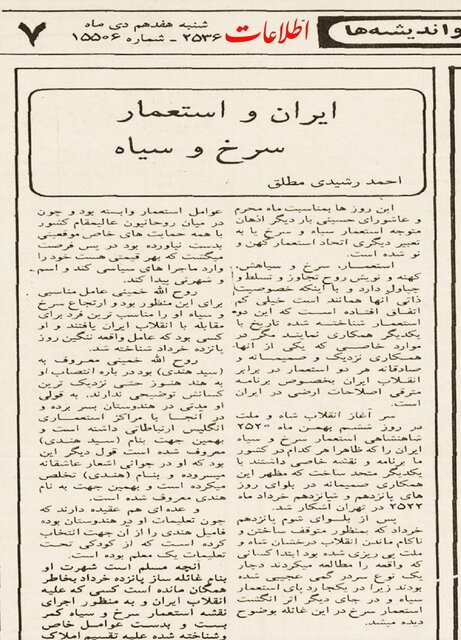 و اندیشه‌ها
اطلاعات
شنبه هفدهم دی ماه
۲۵۳۶ - شماره ۱۵۵۰۶
۷
ایران و استعمار
سرخ و سیاه
احمد رشیدی مطلق
این روز ها بمناسبت ماه محرم
و عاشورای حسینی بار دیگر اذهان
متوجه استعمار سیاه و سرخ یا به
تعبیر دیگری اتحاد استعمار کهن و
نو شده است.
استعمار سرخ و سیاهش،
کهنه و نویش روح تجاوز و تسلط و
چپاول دارد و با اینکه خصوصیت
ذاتی آنها همانند است خیلی کم
اتفاق افتاده است که این دو
استعمار شناخته شده تاریخ با
یکدیگر همکاری نمایند مگر در
موارد خاصی که یکی از آنها
همکاری نزدیک و صمیمانه و
صادقانه هر دو استعمار در برابر
انقلاب ایران بخصوص برنامه
مترقی اصلاحات ارضی در ایران
است.
سر آغاز انقلاب شاه و ملت
در روز ششم بهمن ماه ۲۵۲۰
شاهنشاهی استعمار سرخ و سیاه
ایران را که ظاهرا هر کدام در کشور
ما برنامه و نقشه خاصی داشتند با
یکدیگر متحد ساخت که مظهر این
همکاری صمیمانه در بلوای روز
های پانزدهم و شانزدهم خرداد ماه
۲۵۲۲ در تهران آشکار شد.
پس از بلوای شوم پانزدهم
خرداد که بمنظور متوقف ساختن و
ناکام ماندن انقلاب درخشان شاه و
ملت پی ریزی شده بود ابتدا کسانی
که واقعه را مطالعه میکردند دچار
یک نوع سردر گمی عجیبی شده
بودند زیرا در یکجا رد پای استعمار
سیاه و در جای دیگر اثر انگشت
استعمار سرخ در این غائله بوضوح
دیده میشد.
عوامل استعمار وابسته بود و چون
در میان روحانیون عالیمقام کشور
با همه حمایت های خاص موقعیتی
بدست نیاورده بود در پی فرصت
میگشت که بهر قیمتی هست خود را
وارد ماجرا های سیاسی کند و اسم
و شهرتی پیدا کند.
روح الله خمینی عامل مناسبی
برای این منظور بود و ارتجاع سرخ
و سیاه او را مناسب ترین فرد برای
مقابله با انقلاب ایران یافتند و او
کسی بود که عامل واقعه ننگین روز
پانزده خرداد شناخته شد.
روح الله خمینی معروف به
(سید هندی) بود در باره انتصاب او
به هند هنوز حتی نزدیک ترین
کسانش توضیحی ندارند. به قولی
او مدتی در هندوستان بسر برده و
در آنجا با مراکز استعماری
انگلیس ارتباطاتی داشته است و
بهمین جهت بنام (سید هندی)
معروف شده است قول دیگر این
بود که او در جوانی اشعار عاشقانه
میسروده و بنام (هندی) تخلص
میکرده است و بهمین جهت به نام
هندی معروف شده است.
و عده ای هم عقیده دارند که
چون تعلیمات او در هندوستان بوده
فامیل هندی را از آن جهت انتخاب
کرده است که از کودکی تحت
تعلیمات یک معلم بوده است.
آنچه مسلم است شهرت او
بنام غائله ساز پانزده خرداد بخاطر
همگان مانده است کسی که علیه
انقلاب ایران و به منظور اجرای
نقشه استعمار سرخ و سیاه کمر
بست و بدست عوامل خاص
وشناخته شده علیه تقسیم املاک